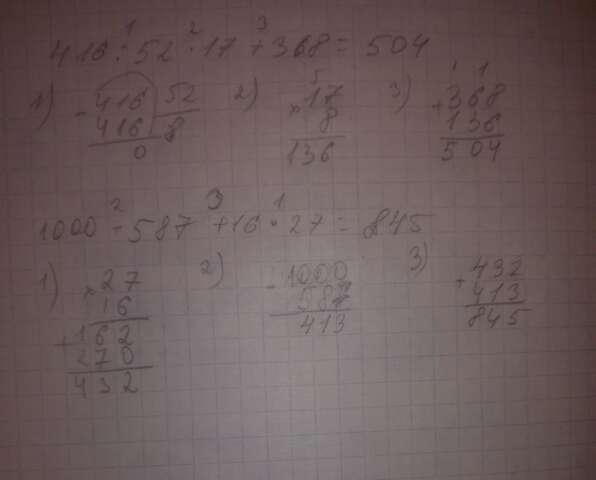 1 2 3
416 : 52 · 17 + 368 = 504
1) 2) 3)
5 1 1
- 416 52 × 17 + 368
416 8 8 136
0 136 504
2 3 1
1000 - 587 + 16 · 27 = 845
1) 2) 3)
× 27 - 1000 + 432
16 587 413
+ 162 413 845
270
432